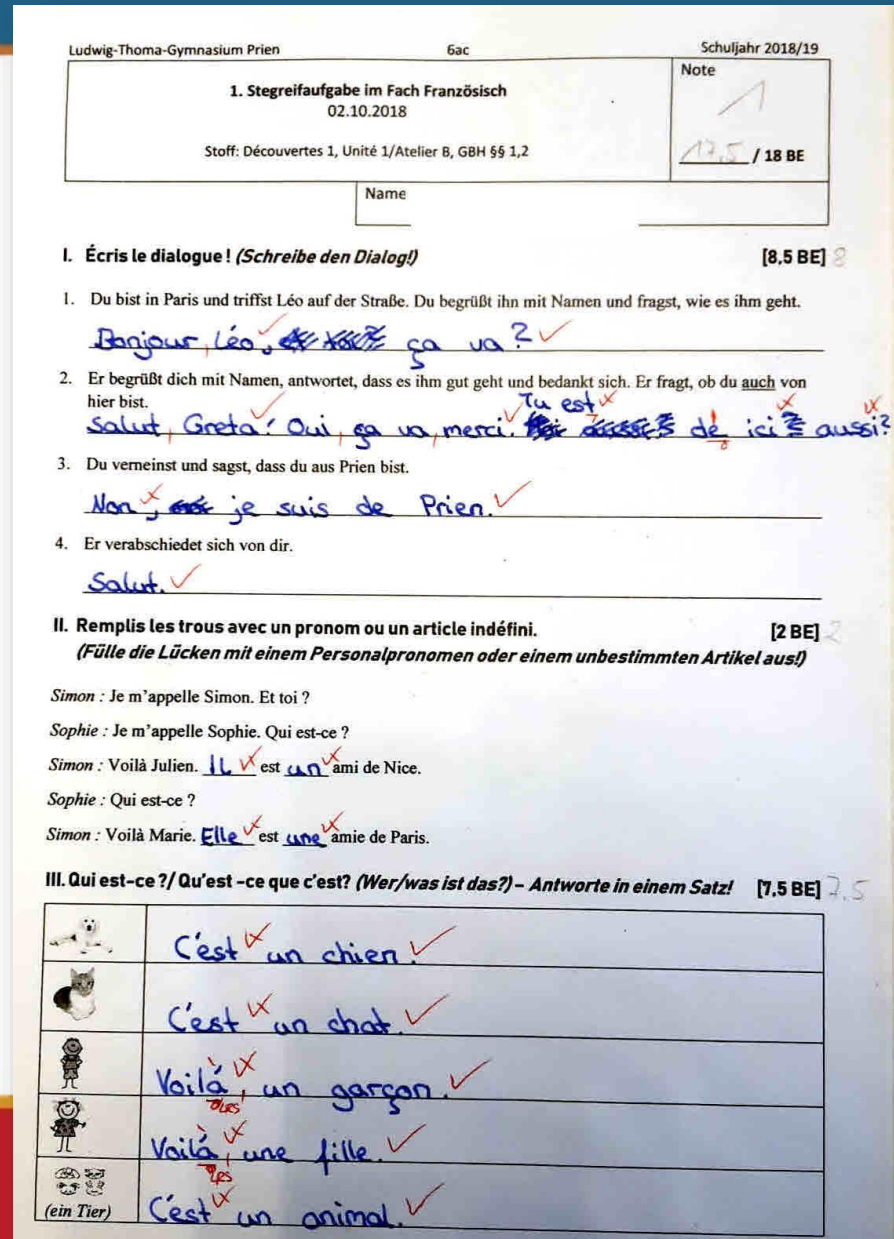 Ludwig-Thoma-Gymnasium Prien 6ac Schuljahr 2018/19
1. Stegreifaufgabe im Fach Französisch
02.10.2018
Stoff: Découvertes 1, Unité 1/Atelier B, GBH §§ 1,2
Note
1
17,5 / 18 BE
Name
I. Écris le dialogue ! (Schreibe den Dialog!) [8,5 BE] 8
1. Du bist in Paris und triffst Léo auf der Straße. Du begrüßt ihn mit Namen und fragst, wie es ihm geht.
Bonjour, Léo, ça va?
2. Er begrüßt dich mit Namen, antwortet, dass es ihm gut geht und bedankt sich. Er fragt, ob du auch von
hier bist.
Tu est
Salut, Greta! Oui, ça va, merci. dé ici aussi?
3. Du verneinst und sagst, dass du aus Prien bist.
Non, je suis de Prien.
4. Er verabschiedet sich von dir.
Salut.
II. Remplis les trous avec un pronom ou un article indéfini. [2 BE] 2
(Fülle die Lücken mit einem Personalpronomen oder einem unbestimmten Artikel aus!)
Simon : Je m'appelle Simon. Et toi ?
Sophie : Je m'appelle Sophie. Qui est-ce ?
Simon : Voilà Julien. Il est un ami de Nice.
Sophie : Qui est-ce ?
Simon : Voilà Marie. Elle est une amie de Paris.
III. Qui est-ce ?/ Qu'est -ce que c'est? (Wer/was ist das?) – Antworte in einem Satz! [7,5 BE] 7.5
C'est un chien.
C'est un chat.
Voilà, un garçon.
Voilá, une fille.
(ein Tier) C'est un animal.